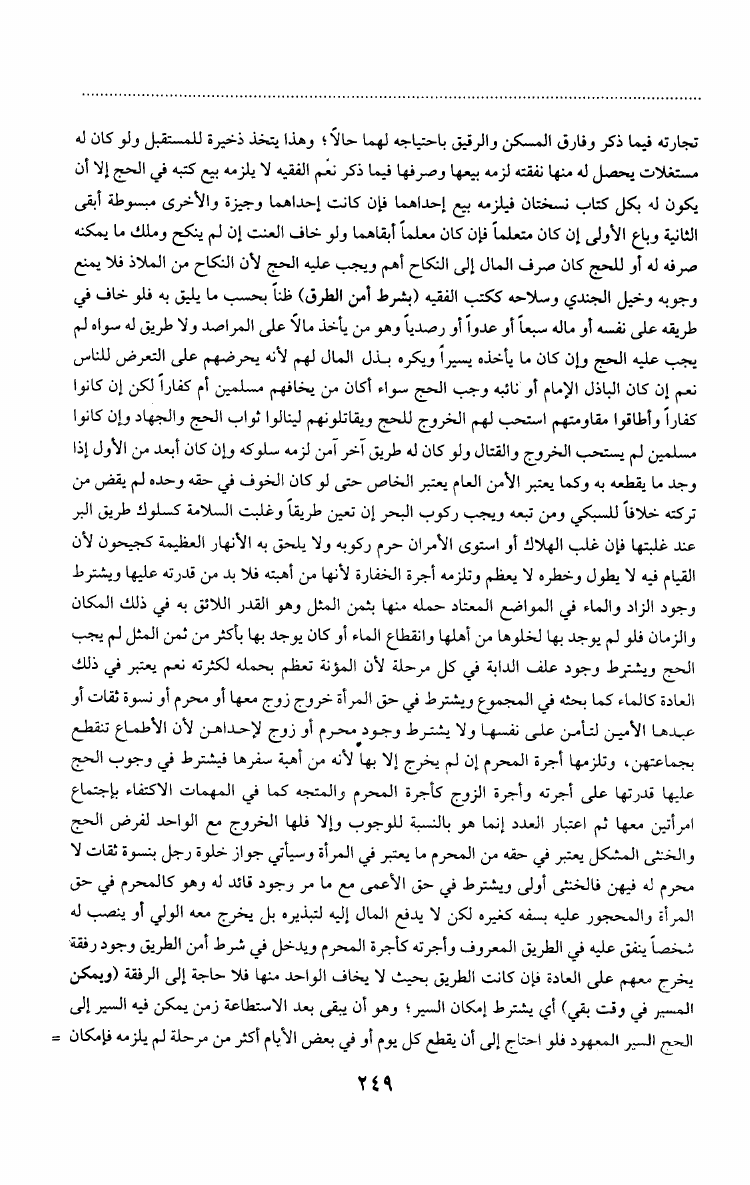 تجارته فيما ذكر وفارق المسكن والرقيق باحتياجه لهما حالاً؛ وهذا يتخذ ذخيرة للمستقبل ولو كان له
مستغلات يحصل له منها نفقته لزمه بيعها وصرفها فيما ذكر نعم الفقيه لا يلزمه بيع كتبه في الحج إلا أن
يكون له بكل كتاب نسختان فيلزمه بيع إحداهما فإن كانت إحداهما وجيزة والأخرى مبسوطة أبقى
الثانية وباع الأولى إن كان متعلماً فإن كان معلماً أبقاهما ولو خاف العنت إن لم ينكح وملك ما يمكنه
صرفه له أو للحج كان صرف المال إلى النكاح أهم ويجب عليه الحج لأن النكاح من الملاذ فلا يمنع
وجوبه وخيل الجندي وسلاحه ككتب الفقيه (بشرط أمن الطرق) ظناً بحسب ما يليق به فلو خاف في
طريقه على نفسه أو ماله سبعاً أو عدواً أو رصدياً وهو من يأخذ مالاً على المراصد ولا طريق له سواه لم
يجب عليه الحج وإن كان ما يأخذه يسيراً ويكره بـذل المال لهم لأنه يحرضهم على التعرض للناس
نعم إن كان الباذل الإمام أو نائبه وجب الحج سواء أكان من يخافهم مسلمين أم كفاراً لكن إن كانوا
كفاراً وأطاقوا مقاومتهم استحب لهم الخروج للحج ويقاتلونهم لينالوا ثواب الحج والجهاد وإن كانوا
مسلمين لم يستحب الخروج والقتال ولو كان له طريق آخر آمن لزمه سلوكه وإن كان أبعد من الأول إذا
وجد ما يقطعه به وكما يعتبر الأمن العام يعتبر الخاص حتى لو كان الخوف في حقه وحده لم يقض من
تركته خلافاً للسبكي ومن تبعه ويجب ركوب البحر إن تعين طريقاً وغلبت السلامة كسلوك طريق البر
عند غلبتها فإن غلب الهلاك أو استوى الأمران حرم ركوبه ولا يلحق به الأنهار العظيمة كجيحون لأن
القيام فيه لا يطول وخطره لا يعظم وتلزمه أجرة الخفارة لأنها من أهبته فلا بد من قدرته عليها ويشترط
وجود الزاد والماء في المواضع المعتاد حمله منها بثمن المثل وهو القدر اللائق به في ذلك المكان
والزمان فلو لم يوجد بها لخلوها من أهلها وانقطاع الماء أو كان يوجد بها بأكثر من ثمن المثل لم يجب
الحج ويشترط وجود علف الدابة في كل مرحلة لأن المؤنة تعظم بحمله لكثرته نعم يعتبر في ذلك
العادة كالماء كما بحثه في المجموع ويشترط في حق المرأة خروج زوج معها أو محرم أو نسوة ثقات أو
عبدهـا الأميـن لتـأمـن علـى نفسهـا ولا يشتـرط وجـود محـرم أو زوج لإحـداهـن لأن الأطمـاع تنقطـع
بجماعتهن، وتلزمها أجرة المحرم إن لم يخرج إلا بها لأنه من أهبة سفرها فيشترط في وجوب الحج
عليها قدرتها على أجرته وأجرة الزوج كأجرة المحرم والمتجه كما في المهمات الاكتفاء بإجتماع
امرأتين معها ثم اعتبار العدد إنما هو بالنسبة للوجوب وإلا فلها الخروج مع الواحد لفرض الحج
والخنثى المشكل يعتبر في حقه من المحرم ما يعتبر في المرأة وسيأتي جواز خلوة رجل بنسوة ثقات لا
محرم له فيهن فالخنثى أولى ويشترط في حق الأعمى مع ما مر وجود قائد له وهو كالمحرم في حق
المرأة والمحجور عليه بسفه كغيره لكن لا يدفع المال إليه لتبذيره بل يخرج معه الولي أو ينصب له
شخصاً ينفق عليه في الطريق المعروف وأجرته كأجرة المحرم ويدخل في شرط أمن الطريق وجود رفقة
يخرج معهم على العادة فإن كانت الطريق بحيث لا يخاف الواحد منها فلا حاجة إلى الرفقة (ويمكن
المسير في وقت بقي) أي يشترط إمكان السير؛ وهو أن يبقى بعد الاستطاعة زمن يمكن فيه السير إلى
الحج السير المعهود فلو احتاج إلى أن يقطع كل يوم أو في بعض الأيام أكثر من مرحلة لم يلزمه فإمكان =
٢٤٩